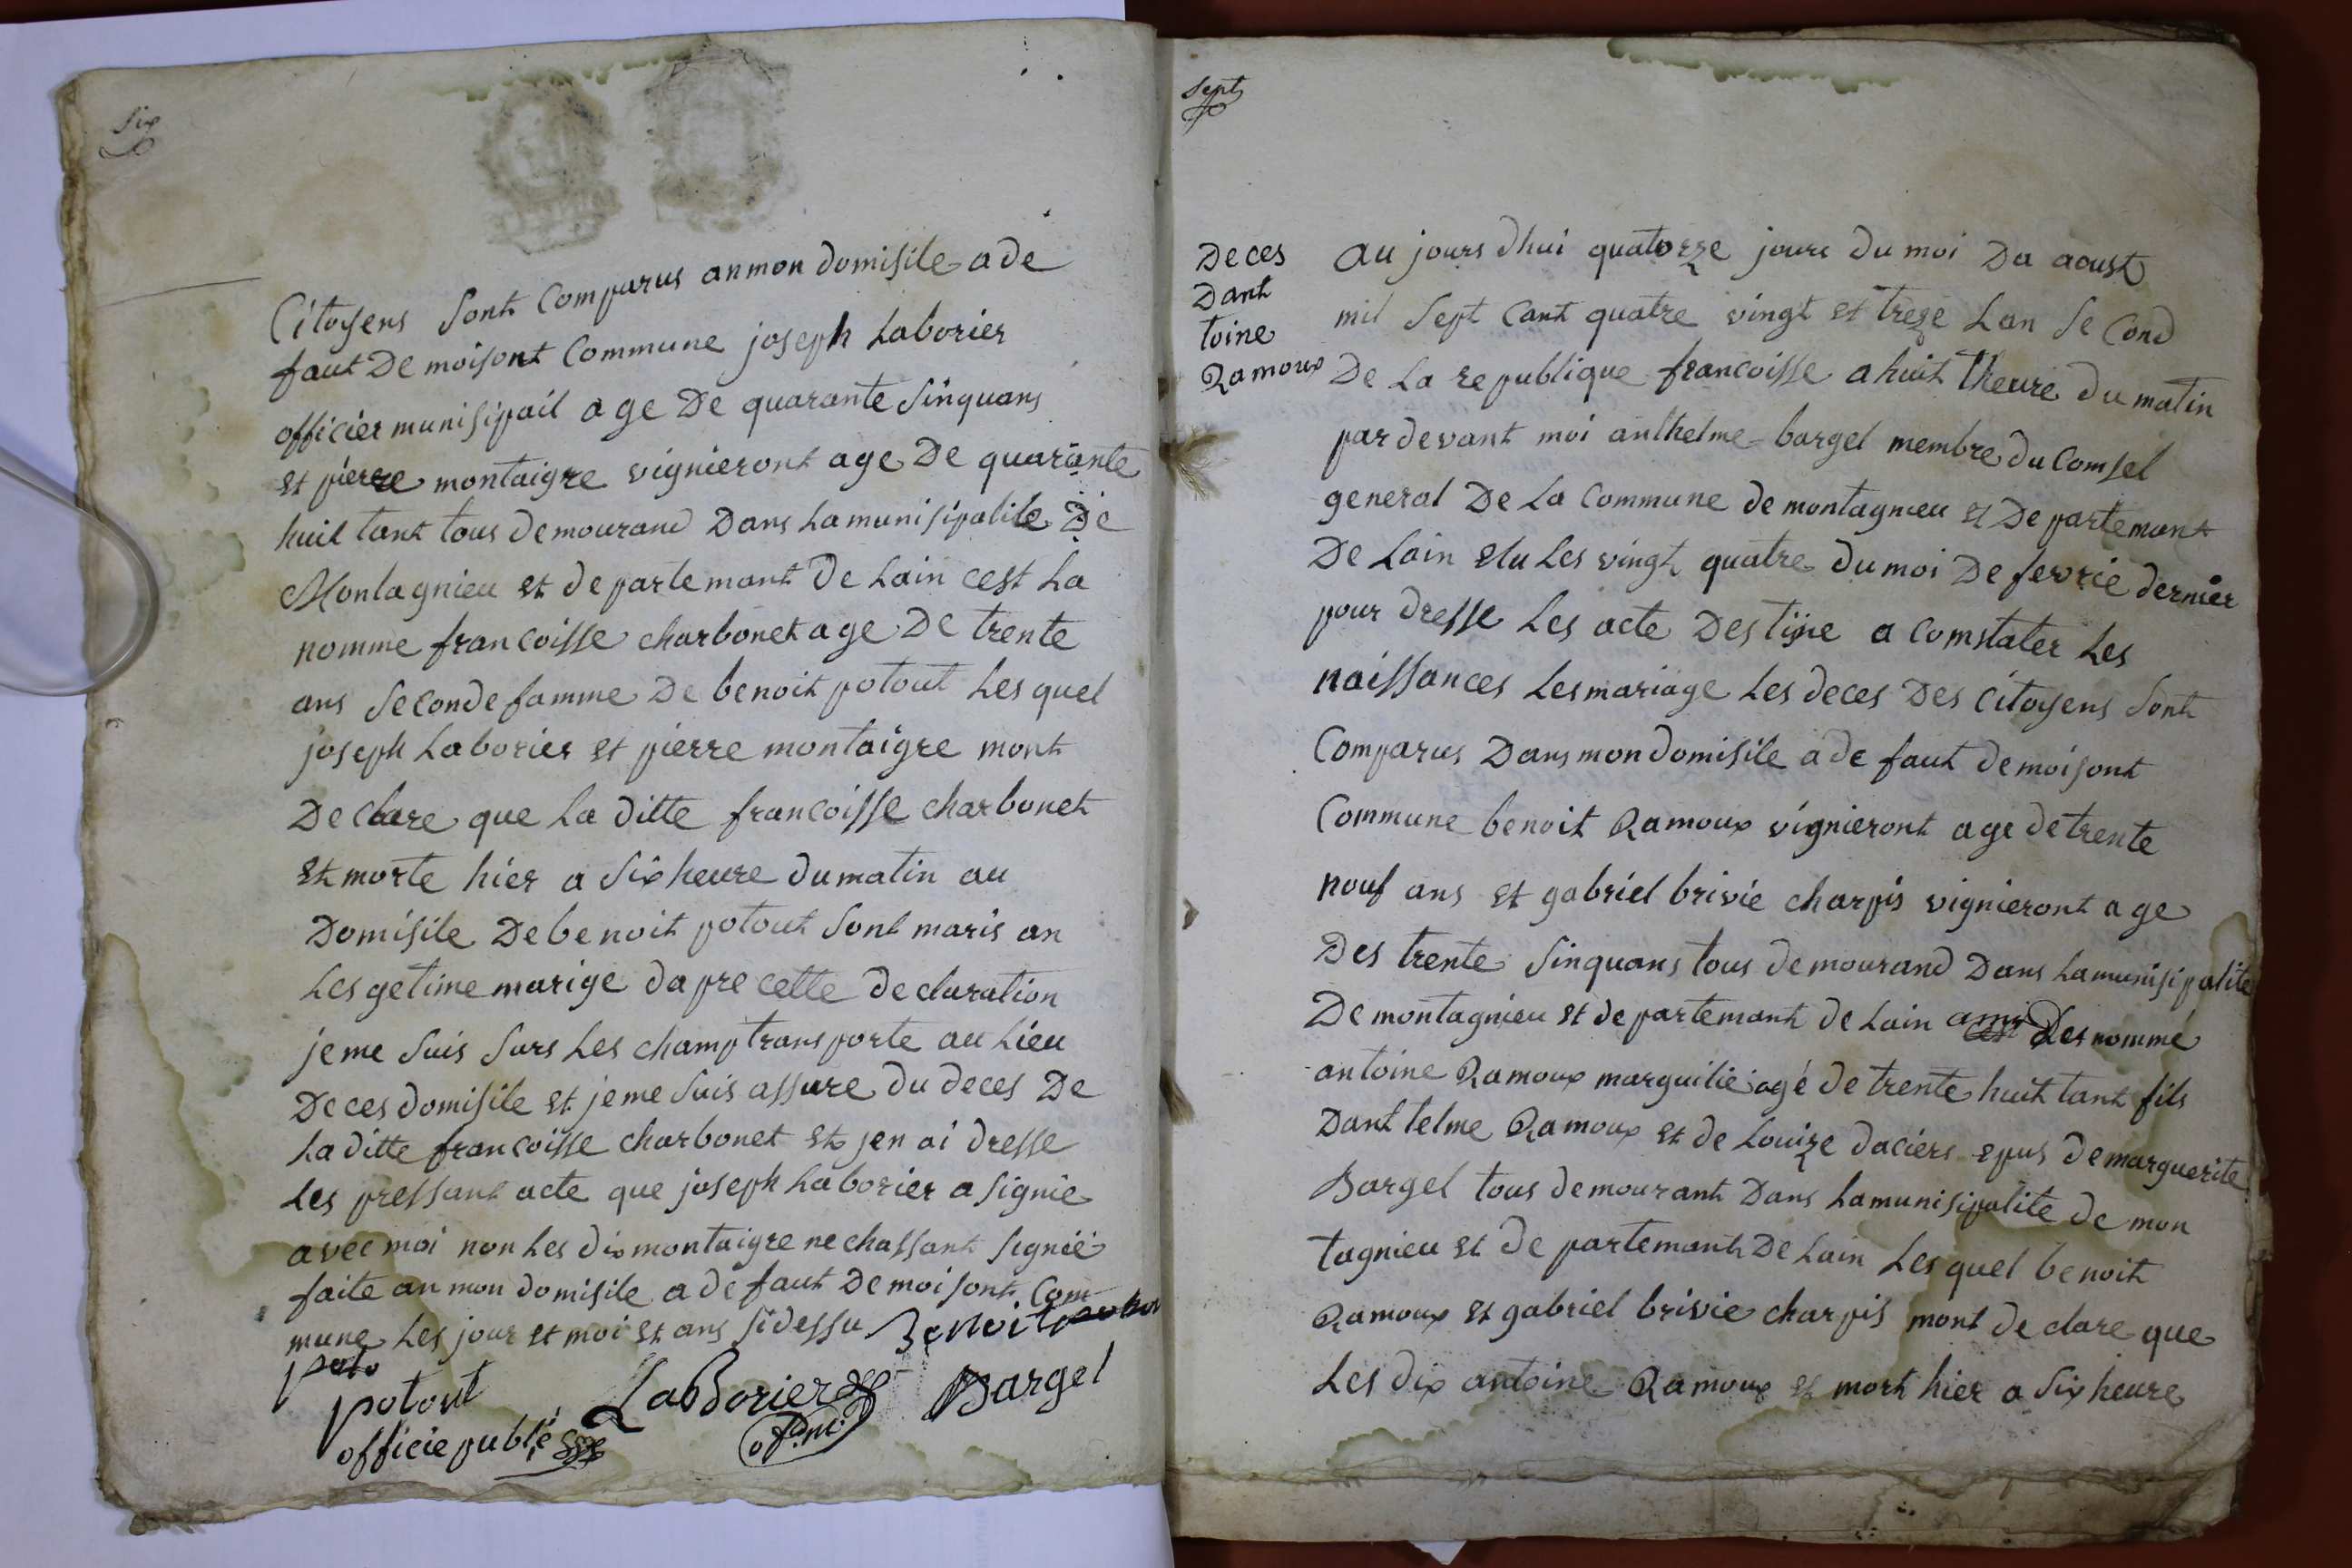 Six
Citoyens sont comparus anmon domisile a de
faut De moisont Commune joseph Laborier
officier munisipail age De quarante sinquans
et pierre montaigre vignieront age De quarante
huit tant tous demourand Dans Lamunisipalite De
Montagnieu et departemant de Lain cest La
nomme francoisse charbonet age De trente
ans seconde famme De benoit potout Les quel
joseph Laborier et pierre montaigre mont
Declare que La ditte francoisse charbonet
et morte hier a six heure dumatin au
Domisile De benoit potout sont maris an
Les getime marige dapre cette declaration
jeme suis surs Les champ transporte au Lieu
De ces domisile et jeme suis assure du deces De
La ditte francoisse charbonet et jen ai dresse
Les pressant acte que joseph Laborier a signie
avec moi non Les dix montaigre ne chassant signié
faite anmon domisile a defaut De moisont Com
mune Les jour et moi et ans sidessu Benoit
poto
potout Laborier Bargel
officie public of. m.
Sept
Deces
Dant
toine
Ramoux
aujours dhui quatorze jours du moi Du aoust
mil sept cant quatre vingt et treze Lan second
De La republique francoisse a huit theure du matin
pardevant moi anthelme bargel membre du Comsel
general De La Commune de montagnieu et Departemant
De Lain elu Les vingt quatre du moi De fevrie dernier
pour dresse Les acte Destine a comstater Les
naissances Lesmariage Les deces Des citoyens sont
Comparus Dans mon domisile a de faut demoisont
Commune benoit Ramoux vignieront age detrente
nouf ans et gabriel brivie charpis vignieront age
Des trente sinquans tous demourand Dans Lamunisipalite
De montagnieu et departemant de Lain Les nommé
antoine Ramoux marguilié agé de trente huit tant fils
Dant telme Ramoux et de Louize daciers epus demarguerite
Bargel tous demourant Dans Lamunisipalite de mon
tagnieu et departemant De Lain Les quel benoit
Ramoux et gabriel brivie charpis mont declare que
Les dix antoine Ramoux et mort hier a six heure